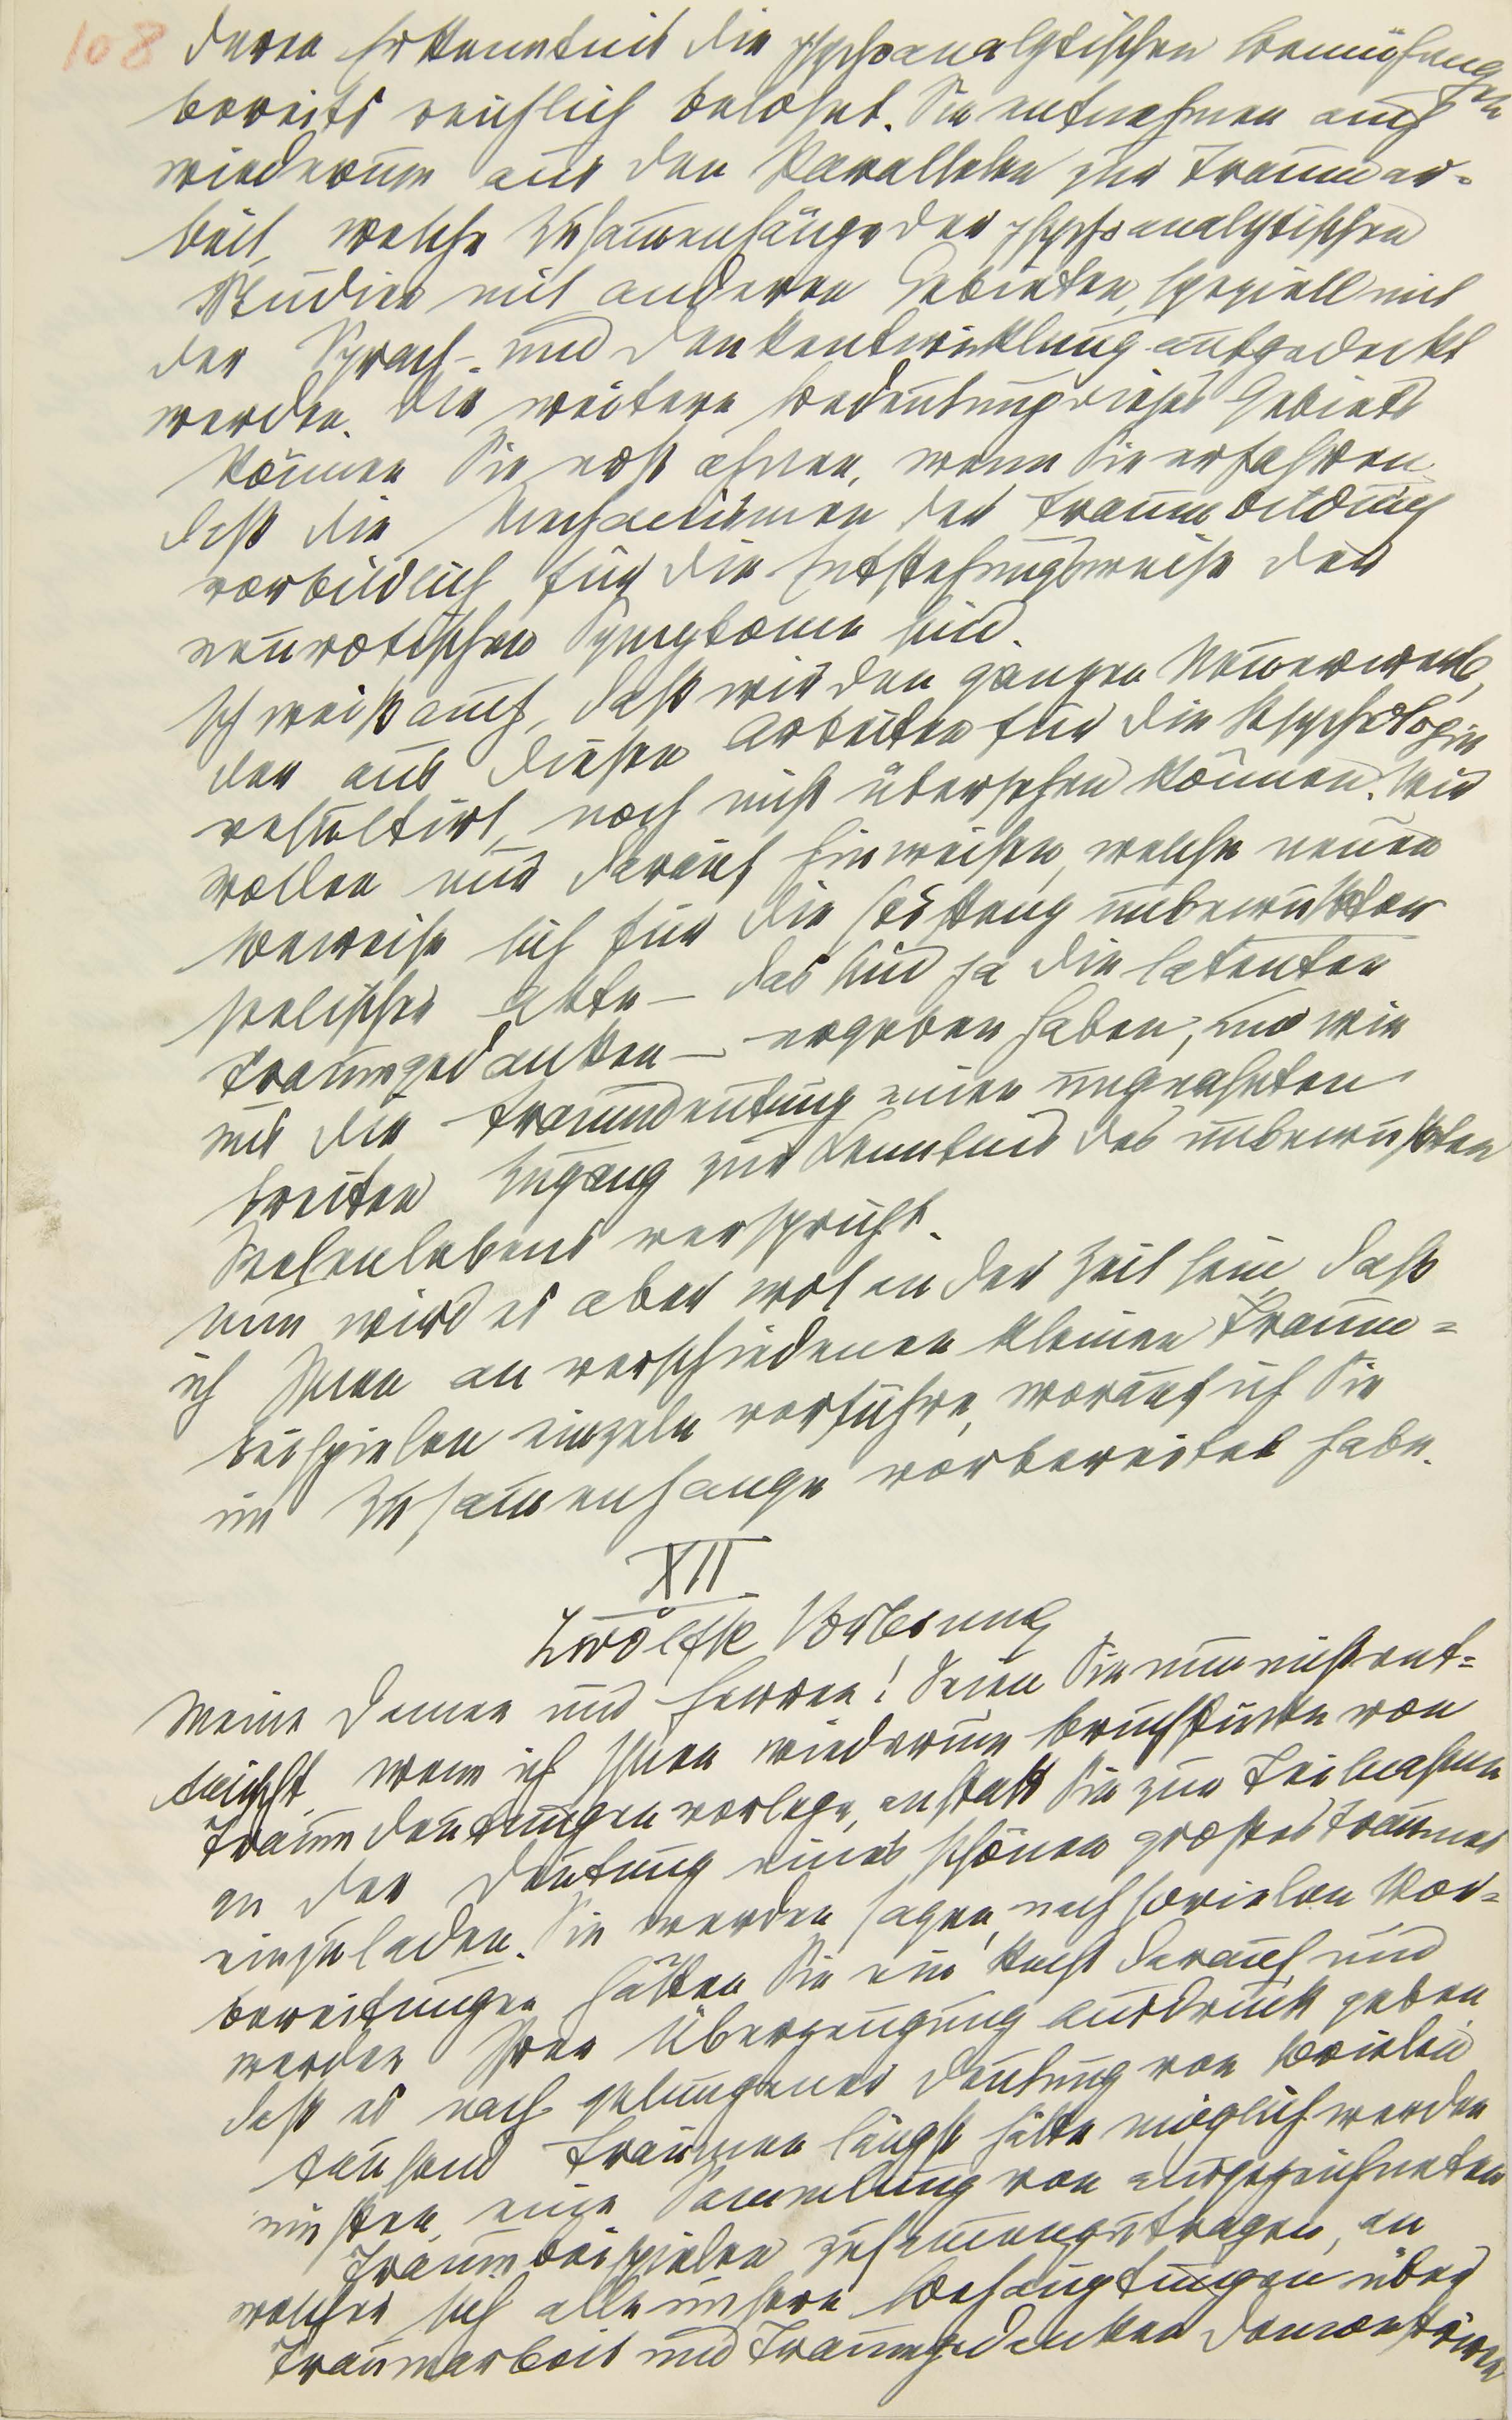 108
deren Erkenntnis die psychoanalytischen Bemühungen
bereits reichlich belohnt. Sie entnehmen auch
wiederum aus den Parallelen zur Traumar-
beit, welche Zusammenhänge der psychoanalytischen
Studien mit anderen Gebieten, speziell mit
der Sprach- und Denkentwicklung aufgedeckt
werden. Die weitere Bedeutung dieses Gebiets
können Sie erst ahnen, wenn Sie erfahren
daß die Mechanismen der Traumbildung
vorbildlich für die Entstehungsweise der
neurotischen Symptome sind.
Ich weiß auch, daß wir den ganzen Neuerwerb,
der aus diesen Arbeiten für die Psychologie
resultirt, noch nicht übersehen können. Wir
wollen nur darauf hinweisen, welche neuen
Beweise sich für die Existenz unbewußter
seelischer Akte – das sind ja die latenten
Traumgedanken – ergeben haben, und wie
uns die Traumdeutung einen ungeahnten
breiten Zugang zur Kenntnis des unbewußten
Seelenlebens verspricht.
Nun wird es aber wol an der Zeit sein daß
ich Ihnen an verschiedenen kleinen Traum-
beispielen einzeln vorführe, worauf ich Sie
im Zusammenhange vorbereitet habe.
XII
Zwölfte Vorlesung
Meine Damen und Herren! Seien Sie nun nicht ent-
täuscht, wenn ich Ihnen wiederum Bruchstücke von
Traumdeutungen vorlege, anstatt Sie zur Teilnahme
an der Deutung eines schönen großen Traumes
einzuladen. Sie werden sagen, nach sovielen Vor-
bereitungen hätten Sie ein Recht darauf, und
werden Ihrer Überzeugung Ausdruck geben,
daß es nach gelungener Deutung von soviel
tausend Träumen längst hätte möglich werden
müssen, eine Sammlung von ausgezeichneten
Traumbeispielen zusammenzutragen, an
welcher sich alle unsere Behauptungen über
Traumarbeit und Traumgedanken demonstriren